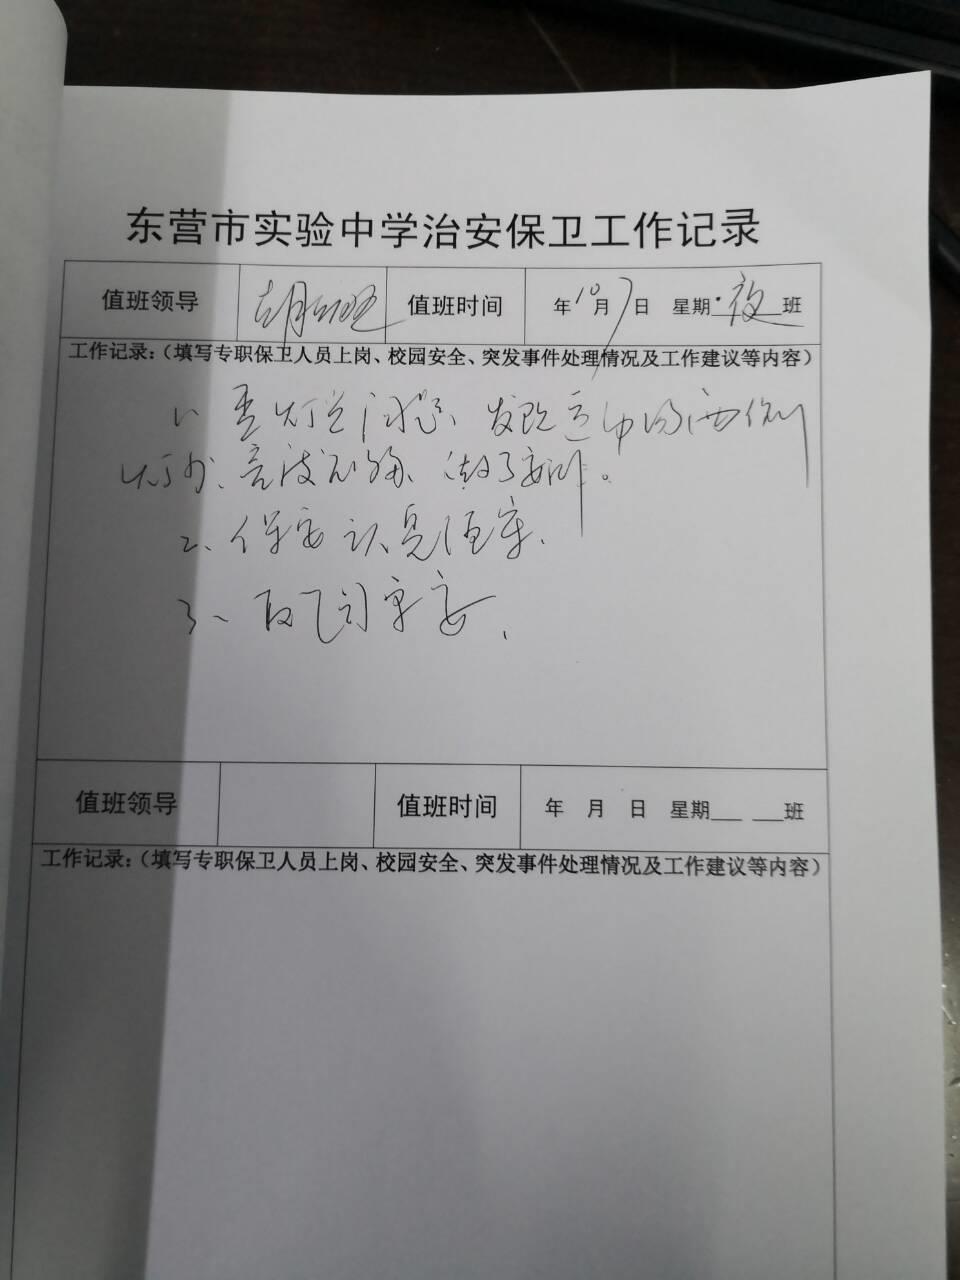 东营市实验中学治安保卫工作记录
值班领导 胡 值班时间 年10月7日 星期 夜班
工作记录:(填写专职保卫人员上岗、校园安全、突发事件处理情况及工作建议等内容)
1、查灯 问题、发现运 场西侧
灯 亮 做了安排。
2、保安认真值守、
3、
值班领导 值班时间 年 月 日 星期___ ___班
工作记录:(填写专职保卫人员上岗、校园安全、突发事件处理情况及工作建议等内容)